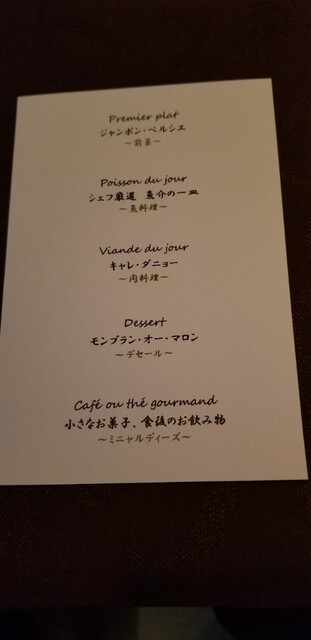 Premier plat
ジャンボン・ペルシエ
～前菜～
Poisson du jour
シェフ厳選 魚介の一皿
～魚料理～
Viande du jour
キャレ・ダニョー
～肉料理～
Dessert
モンブラン・オー・マロン
～デセール～
Café ou thé gourmand
小さなお菓子、食後のお飲み物
～ミニャルディーズ～